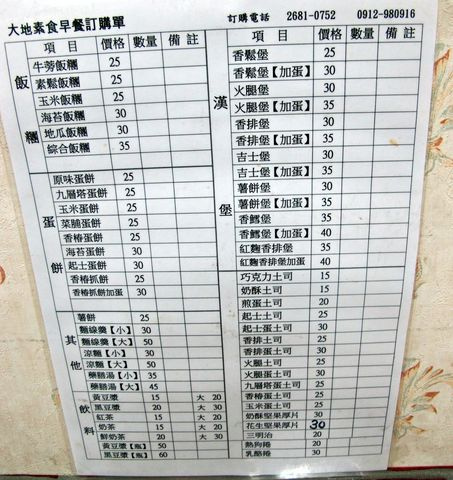 大地素食早餐訂購單
訂購電話 2681-0752 0912-980916
項目 價格 數量 備註
飯糰
牛蒡飯糰 25
素鬆飯糰 25
玉米飯糰 25
海苔飯糰 30
地瓜飯糰 30
綜合飯糰 35
蛋餅
原味蛋餅 25
九層塔蛋餅 25
玉米蛋餅 25
菜脯蛋餅 25
香椿蛋餅 25
海苔蛋餅 30
起士蛋餅 30
香椿抓餅 25
香椿抓餅加蛋 30
其他
薯餅 25
麵線羹【小】 30
麵線羹【大】 50
涼麵【小】 30
涼麵【大】 50
藥膳湯【小】 35
藥膳湯【大】 45
飲料
黃豆漿 15 大 20
黑豆漿 20 大 30
紅茶 15 大 20
奶茶 15 大 20
鮮奶茶 20 大 30
黃豆漿【瓶】 50
黑豆漿【瓶】 60
項目 價格 數量 備註
漢堡
香鬆堡 25
香鬆堡【加蛋】 30
火腿堡 30
火腿堡【加蛋】 35
香排堡 30
香排堡【加蛋】 35
吉士堡 30
吉士堡【加蛋】 35
薯餅堡 30
薯餅堡【加蛋】 35
香鱈堡 35
香鱈堡【加蛋】 40
紅麴香排堡 35
紅麴香排堡加蛋 40
巧克力土司 15
奶酥土司 15
煎蛋土司 20
起士土司 25
起士蛋土司 30
香排土司 25
香排蛋土司 30
火腿土司 25
火腿蛋土司 30
九層塔蛋土司 25
香椿蛋土司 25
玉米蛋土司 25
奶酥堅果厚片 30
花生堅果厚片 30
三明治 20
熱狗捲 20
乳酪捲 30